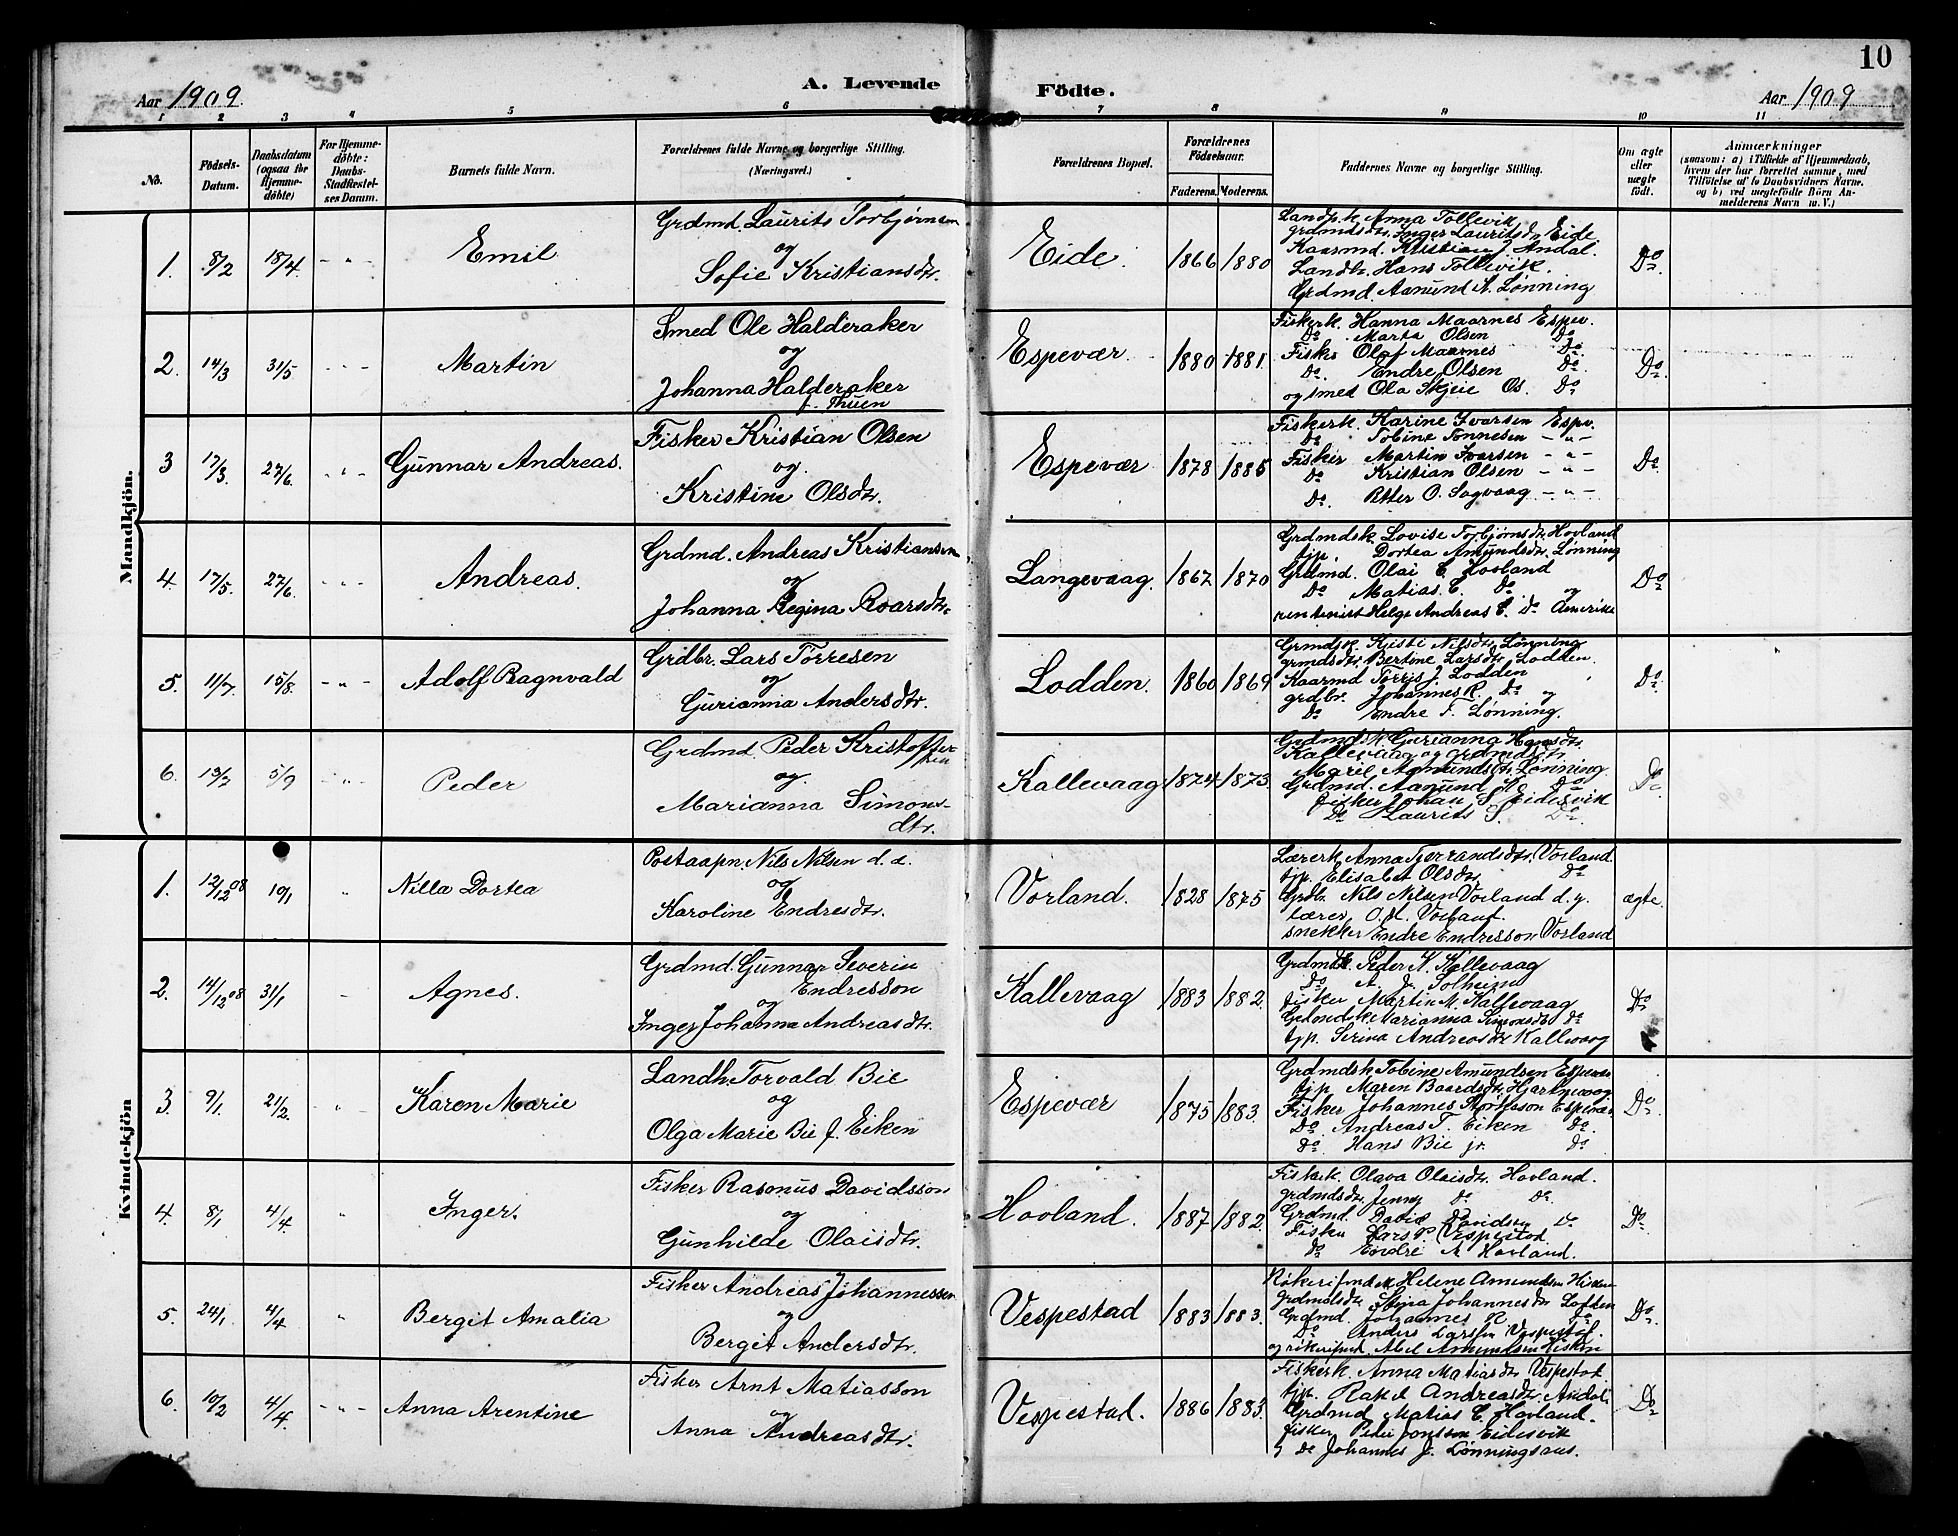 10
Aar 1909.
A. Levende
Födte.
Aar 1909
1 2 3 4 5 6 7 8 9 10 11
No.
Födsels-
Datum.
Daabsdatum
(ogsaa for
Hjemme-
döbte)
For Hjemme-
döbte:
Daabs-
Stadfæstel-
ses Datum.
Barnets fulde Navn.
Forældrenes fulde Navne og borgerlige Stilling.
(Næringsvei.)
Forældrenes Bopæl.
Forældrenes
Födselsaar.
Faderens. Moderens.
Faddernes Navne og borgerlige Stilling.
Om ægte
eller
uægte
födt.
Anmærkninger
(saasom: a) i Tilfælde af Hjemmedaab,
hvem der har forrettet samme, med
Tilföielse af to Daabsvidners Navne.
og b) ved uægtefödte Börn An-
melderens Navn m. V.)
Mandkjön.
1. 8/2 18/4 - " - Emil
Grdmd. Laurits Torbjørnsen
og
Sofie Kristiansdtr.
Eide. 1866 1880
Landh.k. Anna Tollevik
grdmdsdtr. Inger Lauritsdr. Eide
Kaarmd. Kristian J. Andal.
Landh. Hans Tollevik.
Grdmd. Aamund A. Lønning
Do.
2. 14/3 31/5 - " - Martin
Smed Ole Halderaker
og
Johanna Halderaker
f. Thuen
Espevær. 1880 1881.
Fiskerk. Hanna Maarnes Espev.
Do. Marta Olsen Do
Fisker Olaf Maarnes Do
Do. Endre Olsen Do.
og smed Ola Skjeie Os. Do
Do.
3 17/3. 27/6. - " - Gunnar Andreas.
Fisker Kristian Olsen
og
Kristine Olsdtr.
Espevær 1878 1885
Fiskerk. Karine Ivarsen Espv.
Do Tobine Tønnesen - " -
Fisker Martin Ivarsen - " -
Do Kristian Olsen - " -
Do. Petter O. Sagvaag - " -
Do.
4. 17/5. 27/6. - " - Andreas.
Grdmd. Andreas Kristiansen
og
Johanna Regina Roarsdtr.
Langevaag. 1867 1870
Grdmdsk. Lovise Torbjørnsdr. Hovland
tjp. Dortea Amundsdr. Lønning
Grdmd. Olai C. Hovland
Do Matias C. Do og
rentenist Helge Andreas C. Do Amerika
Do
5. 11/7. 15/8. - " - Adolf Ragnvald
Grdbr. Lars Torresen
og
Gurianna Andersdtr.
Lodden. 1860 1869.
Grmdsk. Kjisti Nilsdtr. Lønning
grmdsdtr. Bertine Larsdtr. Lodden.
Kaarmd Torris J. Lodden
grdbr. Johannes R. Do og
Do Endre T. Lønning.
Do.
6. 19/7 5/9 - " - Peder
Grdmd. Peder Kristoffer-
sen
og.
Marianna Simons-
dtr.
Kallevaag 1874 1873.
Grdmdsk. Gurianna Hansdtr.
Kallevaag og grdmdsdtr.
Marie Aamundsdtr. Lønning
Grdmd. Aamund A. Do
fisker Johan S. Eidesvik
Do Laurits S. Do.
Do
Kvindekjön
1. 12/12 08 10/1 " Nilla Dortea
Postaapn. Nils Nilsen d. æ.
og
Karoline Endresdtr.
Vorland. 1828 1875
Lærerk. Anna Tjerrandsdtr. Vorland
tjp. Elisabet Olsdtr. Do
Grdbr. Nils Nilsen Vorland d. y.
lærer O. A. Vorland.
snekker Endre Endresson Vorland
ægte.
2. 14/12 08 31/1 - Agnes.
Grdmd. Gunnar Severin
Endresson
og
Inger Johanna Andreasdtr.
Kallevaag 1883 1882.
Grdmd. Peder K. Kallevaag
Do. A. J. Solheim
fisker Martin M. Kallevaag
Grdmdsk Marianna Simonsdtr Do
tjp. Serina Andreasdtr Kallevaag
Do
3. 9/1. 21/2. - " - Karen Marie
Landh. Torvald Bie
og
Olga Marie Bie f. Eiken
Espevær 1875 1883.
Grdmdsk Tobine Amundsen Espevær
tjp. Maren Baardsdtr.
Fisker Johannes Espevær
Do Andreas T. Eiken Do.
Do. Hans Bie jr. Do
Do.
4. 8/1 4/4 " Inger.
Fisker Rasmus Davidsson
og
Gunhilde Olaisdtr.
Hovland. 1887 1882.
Fiskerk. Olava Olaisdtr. Hovland.
grdmdsdtr. Jenny Do Do.
Grdmd. David Davidsen Do
Fisker Lars P. Vespestad
Do Endre A Hovland.
Do.
5. 24/1. 4/4 " Bergit Amalia
Fisker Andreas Johannessen
og
Bergit Andersdtr.
Vespestad 1883 1883.
Helene Amundsen Hisken
grdmdsdtr. Stina Johannesdtr Loften
Grdmd. Johannes R. Do
Do Anders Larssen Vespestad.
Abel Amundsen Hisken
Do.
6. 10/2 4/4 - " - Anna Arentine
Fisker Arnt Matiasson
og
Anna Andreasdtr.
Vespestad. 1886 1883.
Fiskerk. Anna Matiasdtr Vespestad.
tjp. Rakel Andreasdtr Andal
Grdmd Matias C. Hovland.
fisker Peder Jonsson Eidesvik
og Do Johannes J. Lønningsnes.
Do